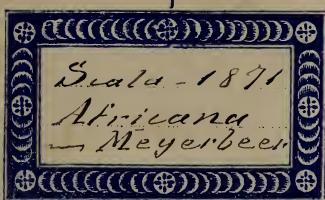 Scala - 1871
Africana
— Meyerbeer